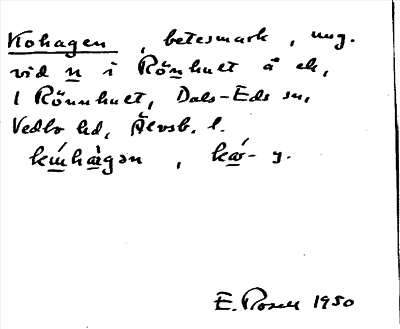 Kohagen, betesmark, ung.
vid n i Rönhult å ek,
1 Rönnhult, Dals-Eds sn,
Vedbo hd, Älvsb. l.
, kó- y.
E. Rosell 1950